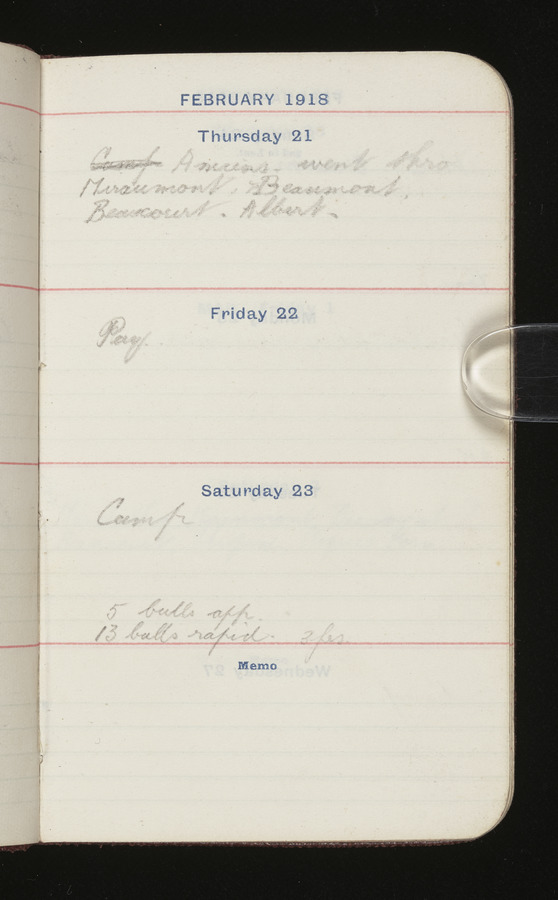 FEBRUARY 1918
Thursday 21
Camp Amiens. went thro
Miraumont. Beaumont.
Beaucourt. Albert.
Friday 22
Pay.
Saturday 23
Camp
5 bulls app.
13 bulls rapid.
Memo